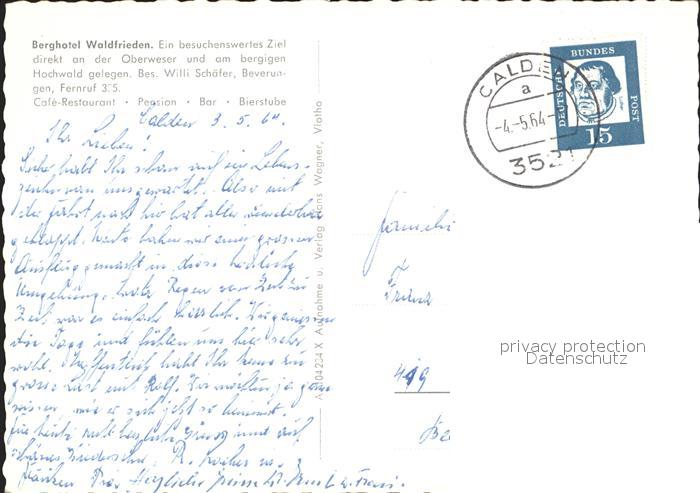 Berghotel Waldfrieden. Ein besuchenswertes Ziel
direkt an der Oberweser und am bergigen
Hochwald gelegen. Bes. Willi Schäfer, Beverun-
gen, Fernruf 335.
Café-Restaurant • Pension • Bar • Bierstube
Calden 3.5.64.
Ihr Lieben!
habt Ihr schon auf ein Lebens-
zeichen von uns gewartet. Also mit
der Fahrt nach hier hat alles wunderbar
geklappt. Heute haben wir einen grossen
Ausflug gemacht in diese herrliche
Umgebung. Trotz Regen von Zeit zu
Zeit war es einfach herrlich. Wir geniessen
die Tage und fühlen uns hier sehr
wohl. Hoffentlich habt Ihr keine zu
grosse Last mit Rolf. Wir möchten ja gerne
wissen, wie er sich jetzt so benimmt.
Für heute recht herzliche Grüsse und auf
Herzliche Grüsse
Aufnahme u. Verlag Hans Wagner, Vlotho
CALDEN
a
-4.-5.64-
3521
DEUTSCHE BUNDES POST
15
Familie
Franz
419
Be
privacy protection
Datenschutz